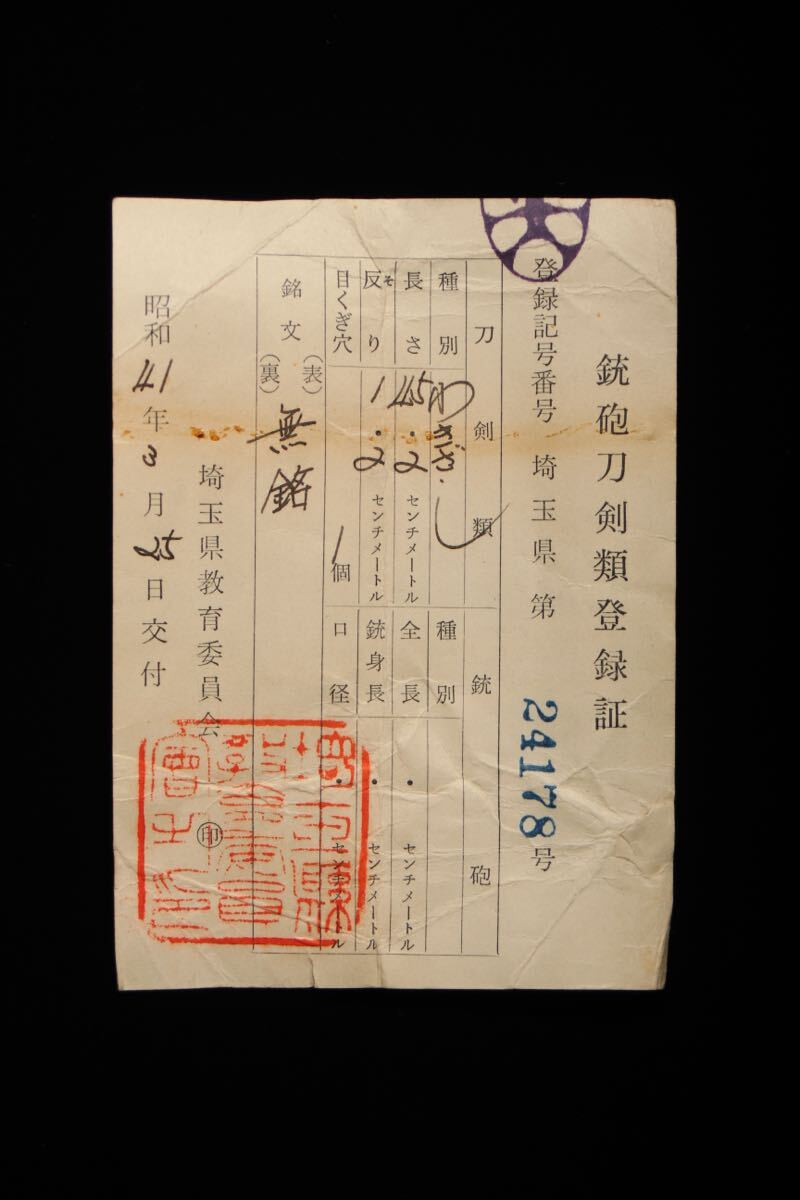 銃砲刀剣類登録証
登録記号番号 埼玉県 第 24178 号
刀剣類
種別 わきざし
長さ 45.2 センチメートル
反り そ 1.2 センチメートル
目くぎ穴 1 個
銃砲
種別
全長 ・ センチメートル
銃身長 ・ センチメートル
口径 ・ センチメートル
銘文 (表) 無銘
(裏)
埼玉県教育委員会 印
昭和 41 年 3 月 25 日交付
埼玉縣
教育委員
會之印